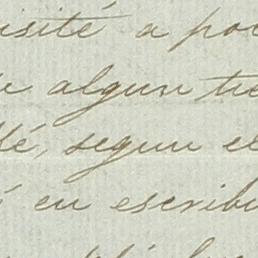 visité a po
algun tie
sé, segun el
en escribi